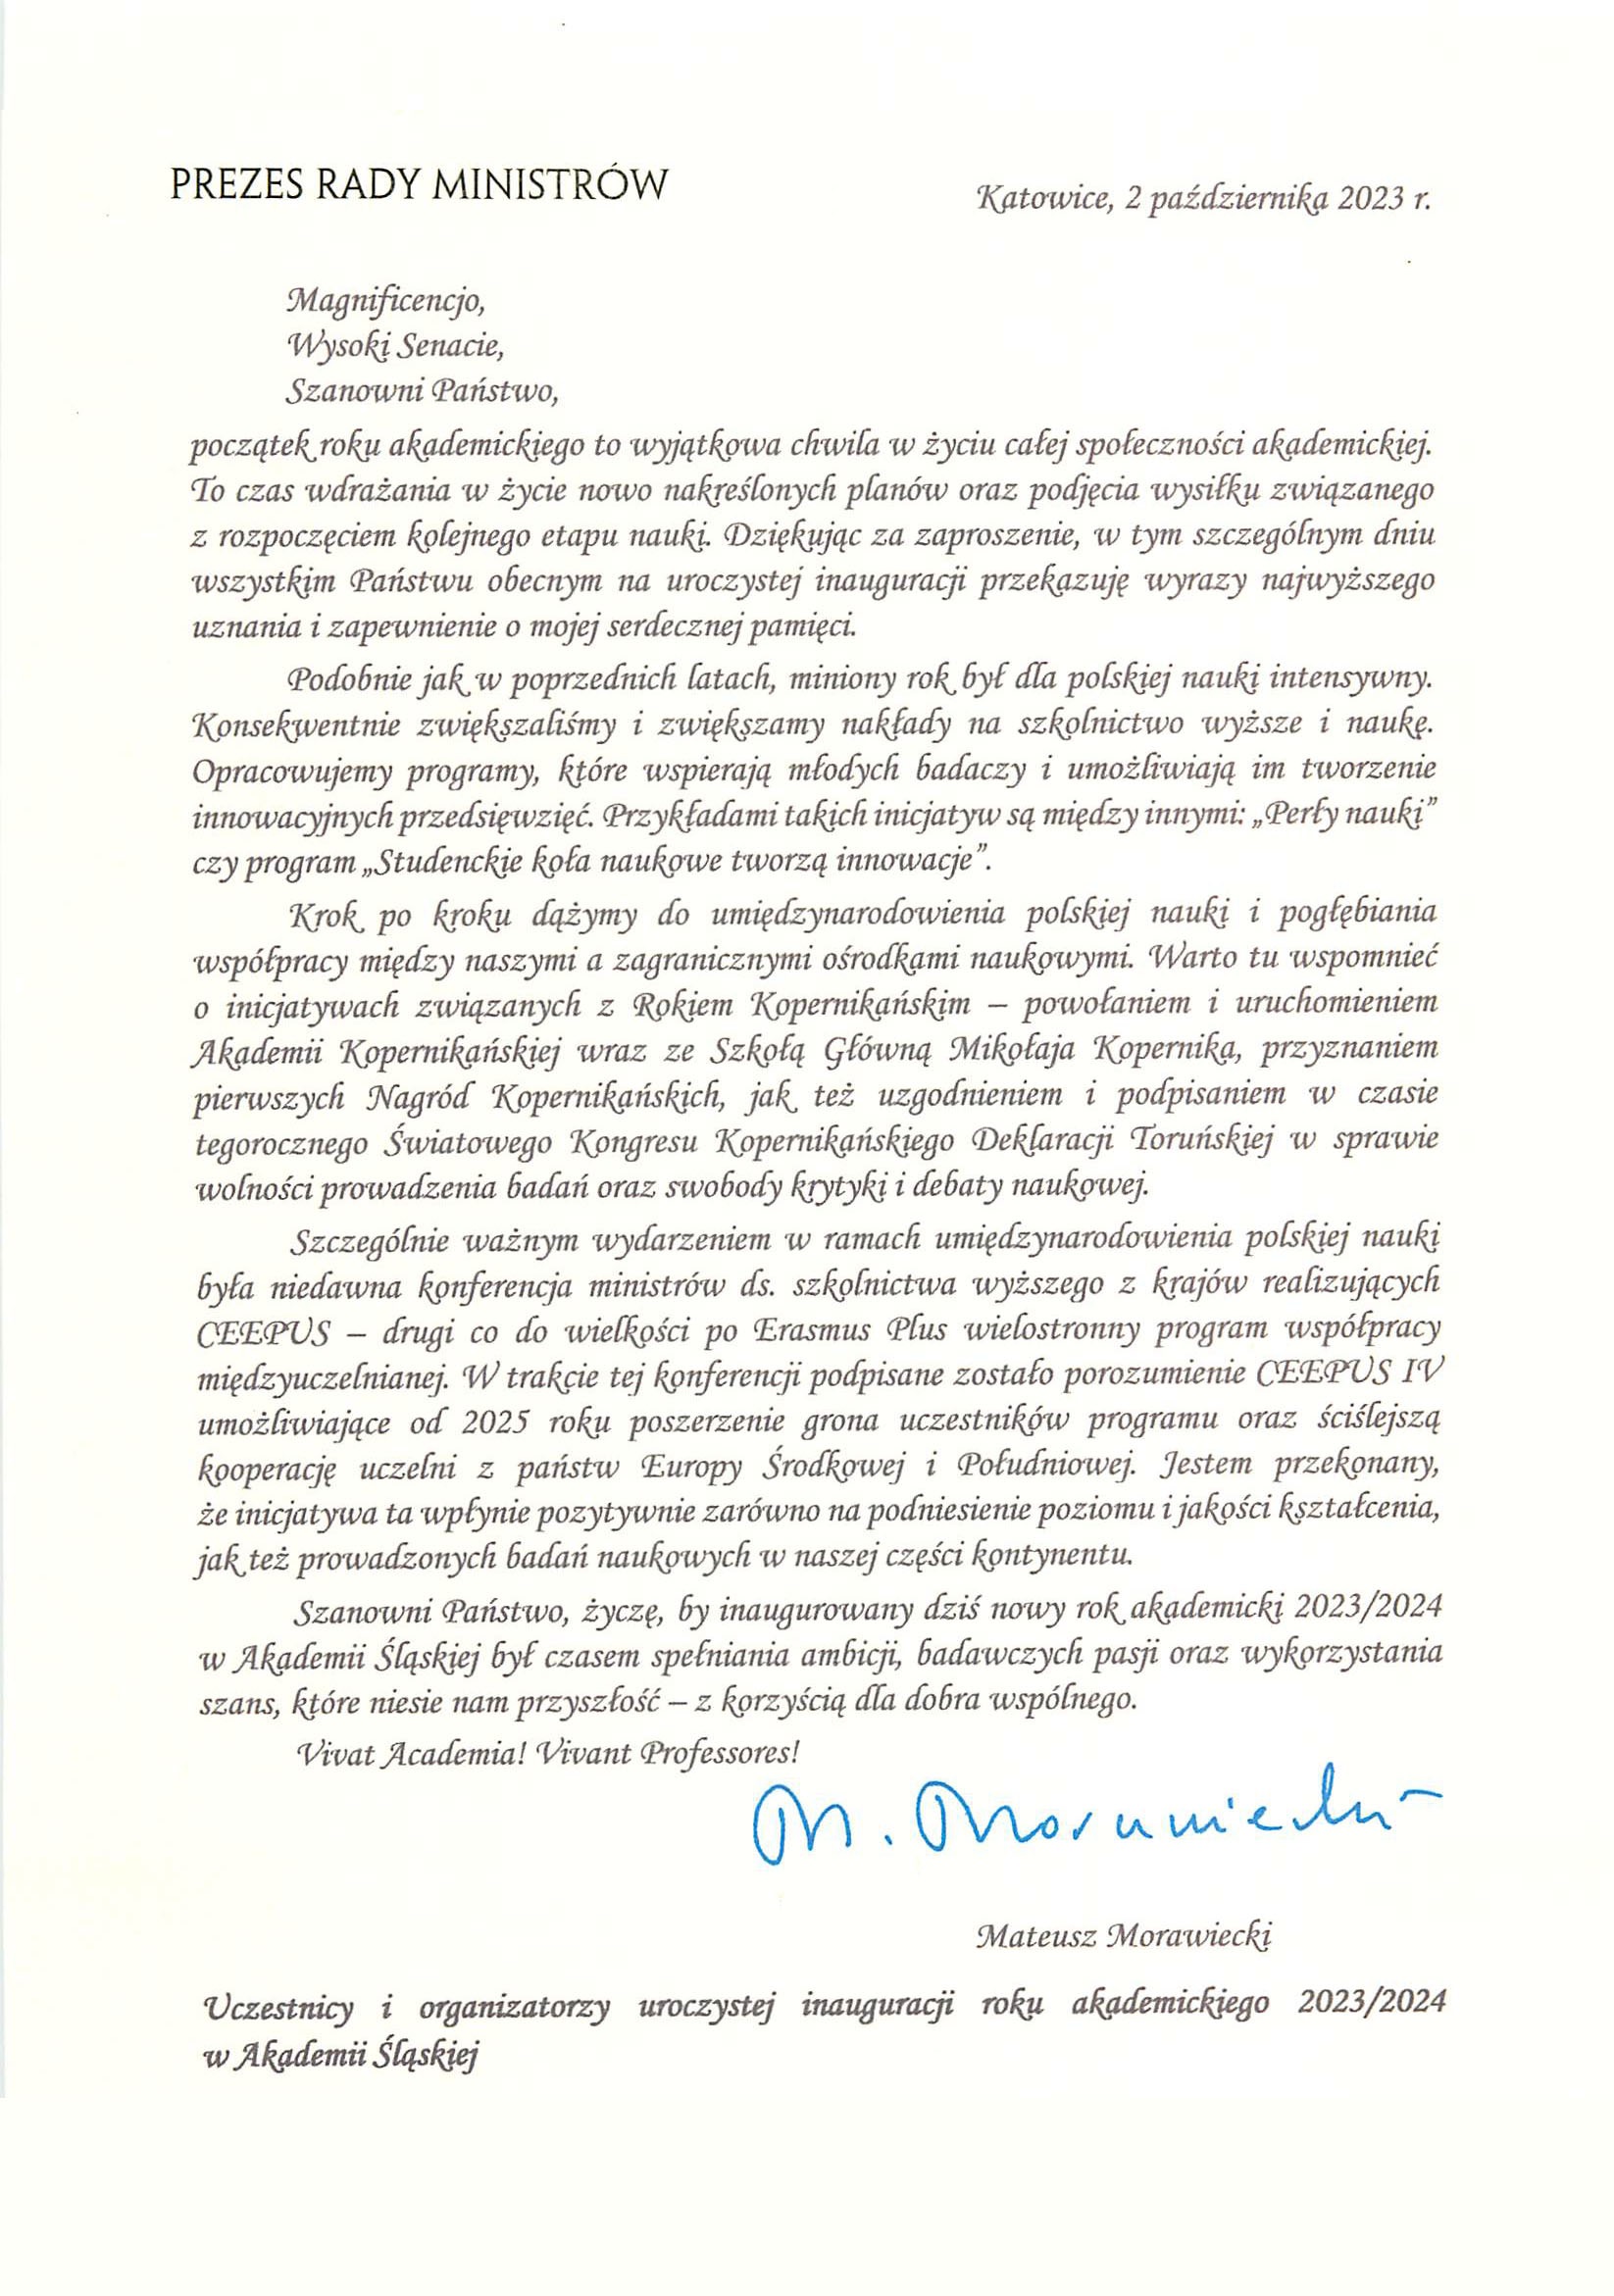 PREZES RADY MINISTRÓW
Katowice, 2 października 2023 r.
Magnificencjo,
Wysoki Senacie,
Szanowni Państwo,
początek roku akademickiego to wyjątkowa chwila w życiu całej społeczności akademickiej.
To czas wdrażania w życie nowo nakreślonych planów oraz podjęcia wysiłku związanego
z rozpoczęciem kolejnego etapu nauki. Dziękując za zaproszenie, w tym szczególnym dniu
wszystkim Państwu obecnym na uroczystej inauguracji przekazuję wyrazy najwyższego
uznania i zapewnienie o mojej serdecznej pamięci.
Podobnie jak w poprzednich latach, miniony rok był dla polskiej nauki intensywny.
Konsekwentnie zwiększaliśmy i zwiększamy nakłady na szkolnictwo wyższe i naukę.
Opracowujemy programy, które wspierają młodych badaczy i umożliwiają im tworzenie
innowacyjnych przedsięwzięć. Przykładami takich inicjatyw są między innymi: „Perły nauki”
czy program „Studenckie koła naukowe tworzą innowacje”.
Krok po kroku dążymy do umiędzynarodowienia polskiej nauki i pogłębiania
współpracy między naszymi a zagranicznymi ośrodkami naukowymi. Warto tu wspomnieć
o inicjatywach związanych z Rokiem Kopernikańskim – powołaniem i uruchomieniem
Akademii Kopernikańskiej wraz ze Szkołą Główną Mikołaja Kopernika, przyznaniem
pierwszych Nagród Kopernikańskich, jak też uzgodnieniem i podpisaniem w czasie
tegorocznego Światowego Kongresu Kopernikańskiego Deklaracji Toruńskiej w sprawie
wolności prowadzenia badań oraz swobody krytyki i debaty naukowej.
Szczególnie ważnym wydarzeniem w ramach umiędzynarodowienia polskiej nauki
była niedawna konferencja ministrów ds. szkolnictwa wyższego z krajów realizujących
CEEPUS – drugi co do wielkości po Erasmus Plus wielostronny program współpracy
międzyuczelnianej. W trakcie tej konferencji podpisane zostało porozumienie CEEPUS IV
umożliwiające od 2025 roku poszerzenie grona uczestników programu oraz ściślejszą
kooperację uczelni z państw Europy Środkowej i Południowej. Jestem przekonany,
że inicjatywa ta wpłynie pozytywnie zarówno na podniesienie poziomu i jakości kształcenia,
jak też prowadzonych badań naukowych w naszej części kontynentu.
Szanowni Państwo, życzę, by inaugurowany dziś nowy rok akademicki 2023/2024
w Akademii Śląskiej był czasem spełniania ambicji, badawczych pasji oraz wykorzystania
szans, które niesie nam przyszłość – z korzyścią dla dobra wspólnego.
Vivat Academia! Vivant Professores!
M. Morawiecki
Mateusz Morawiecki
Uczestnicy i organizatorzy uroczystej inauguracji roku akademickiego 2023/2024
w Akademii Śląskiej